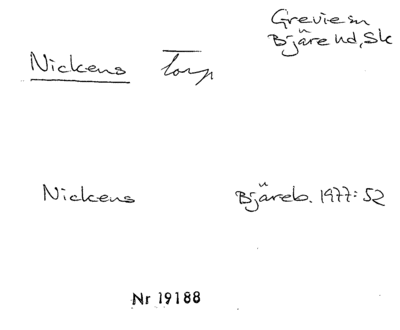 Grevie sn
Bjäre hd, Sk
Nickens Torp
Nickens Bjäreb. 1977: 52
Nr 19188